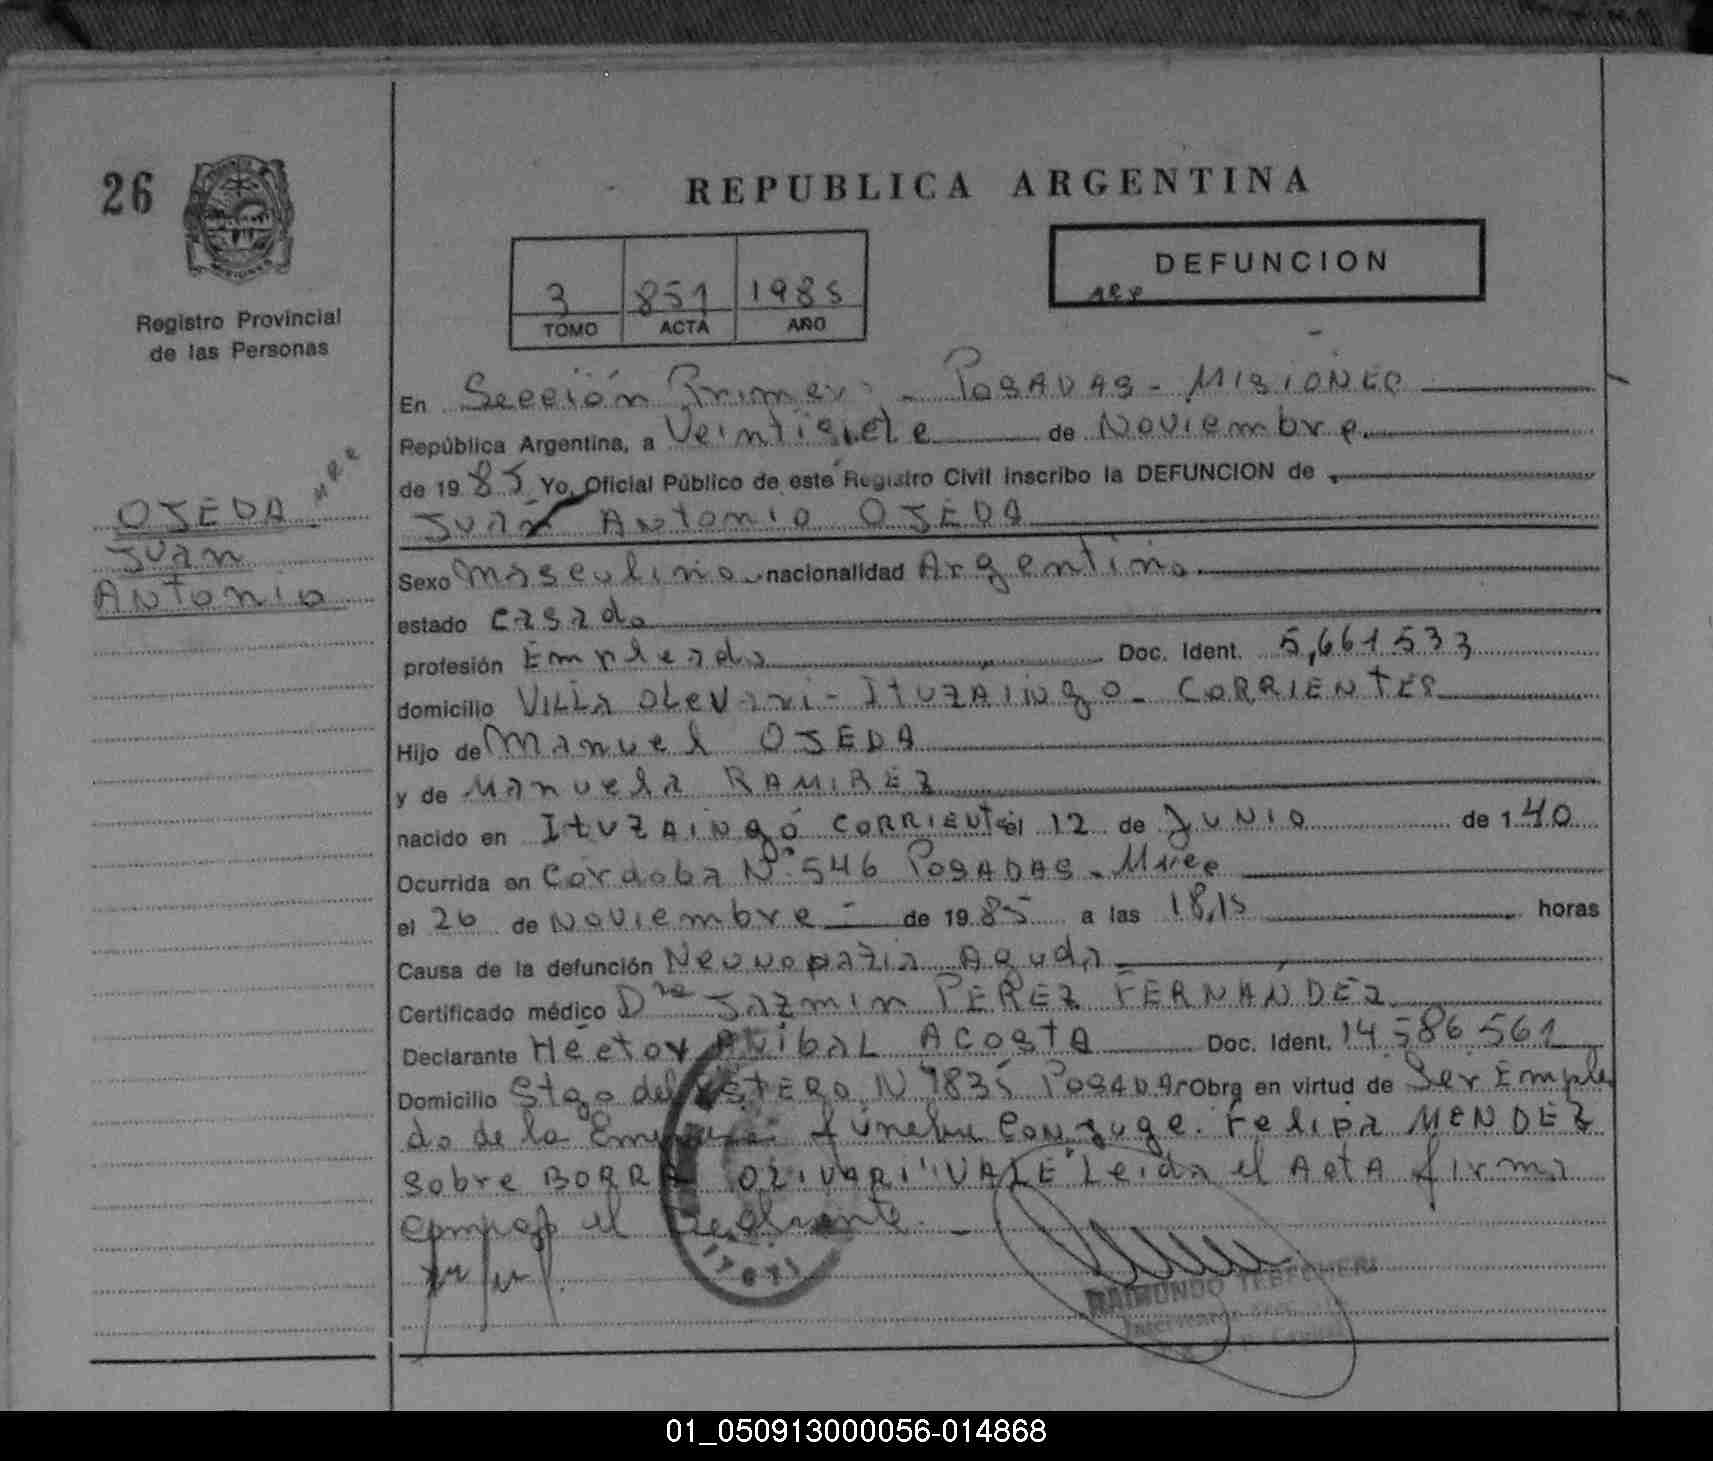 26
REPUBLICA ARGENTINA
DEFUNCION
3 851 1985
TOMO ACTA AÑO
Registro Provincial
de las Personas
OJEDA
Juan
Antonio
En Sección Primera - POSADAS - MISIONES
República Argentina, a Veintisiete de Noviembre
de 1985 Yo, Oficial Público de este Registro Civil inscribo la DEFUNCION de
Juan Antonio OJEDA
Sexo Masculino nacionalidad Argentina
estado casado
profesión Empleado Doc. Ident. 5,661533
domicilio VILLA OLIVARI - ITUZAINGO - CORRIENTES
Hijo de Manuel OJEDA
y de Manuela RAMIREZ
nacido en ITUZAINGó CORRIENTES el 12 de JUNIO de 1 40
Ocurrida en Córdoba Nº 546 POSADAS - Mnes
el 26 de Noviembre - de 1985 a las 18,15 horas
Causa de la defunción Aguda
Certificado médico Dra JAZMIN PEREZ FERNANDEZ
Declarante Héctor ANIBAL ACOSTA Doc. Ident. 14.586.561
Domicilio Stgo del ESTERO Nº 1835 POSADAS Obra en virtud de Ser Emplea
do de la Empresa fúnebre Conyuge: Felipa MENDEZ
Sobre BORRA OLIVARI "VALE" Leida el ActA firma
conmigo el Declarante. -
RAIMUNDO
01_050913000056-014868